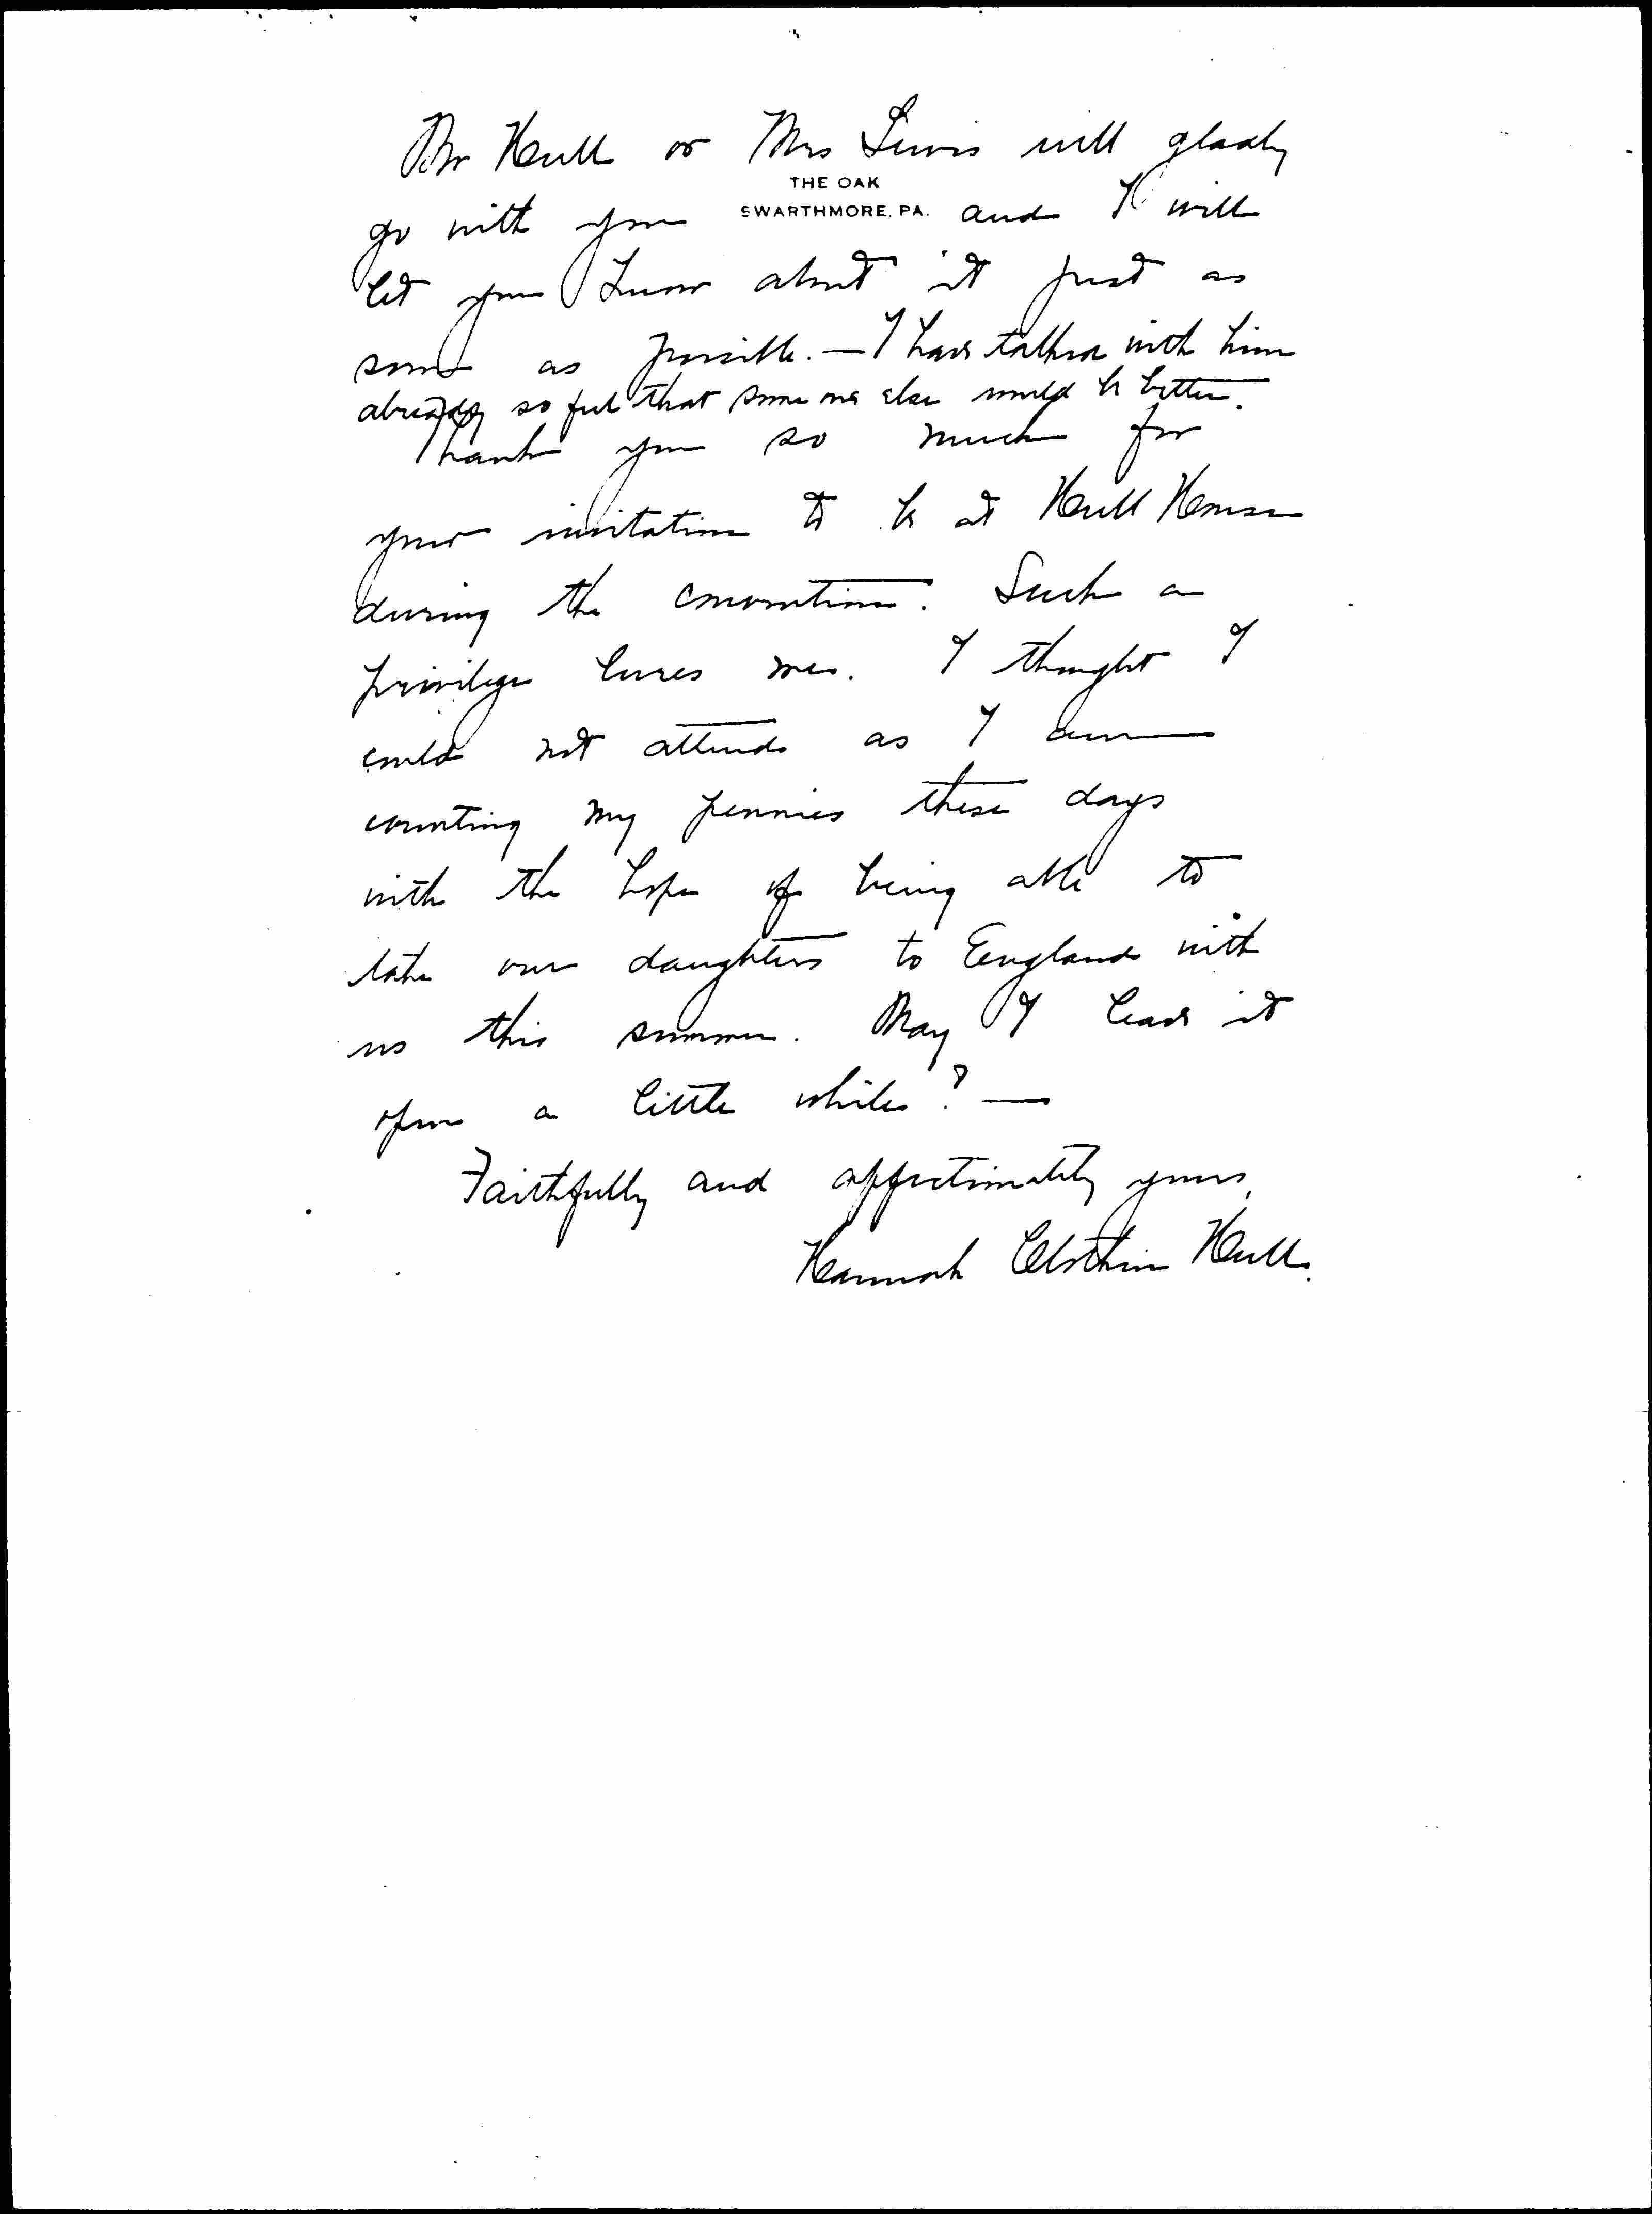 Mr Hull or Mrs Lewis will gladly
THE OAK
SWARTHMORE, PA.
go with you and I will
let you know about it just as
soon as possible. — I have talked with him
already so feel that some one else would be better.
Thank you so much for
your invitation to be at Hull House
during the convention. Such a
privilege lures me. I thought I
could not attend as I am
counting my pennies these days
with the hope of being able to
take our daughters to England with
us this summer. May I leave it
open a little while? —
Faithfully and affectionately yours,
Hannah Clothier Hull.